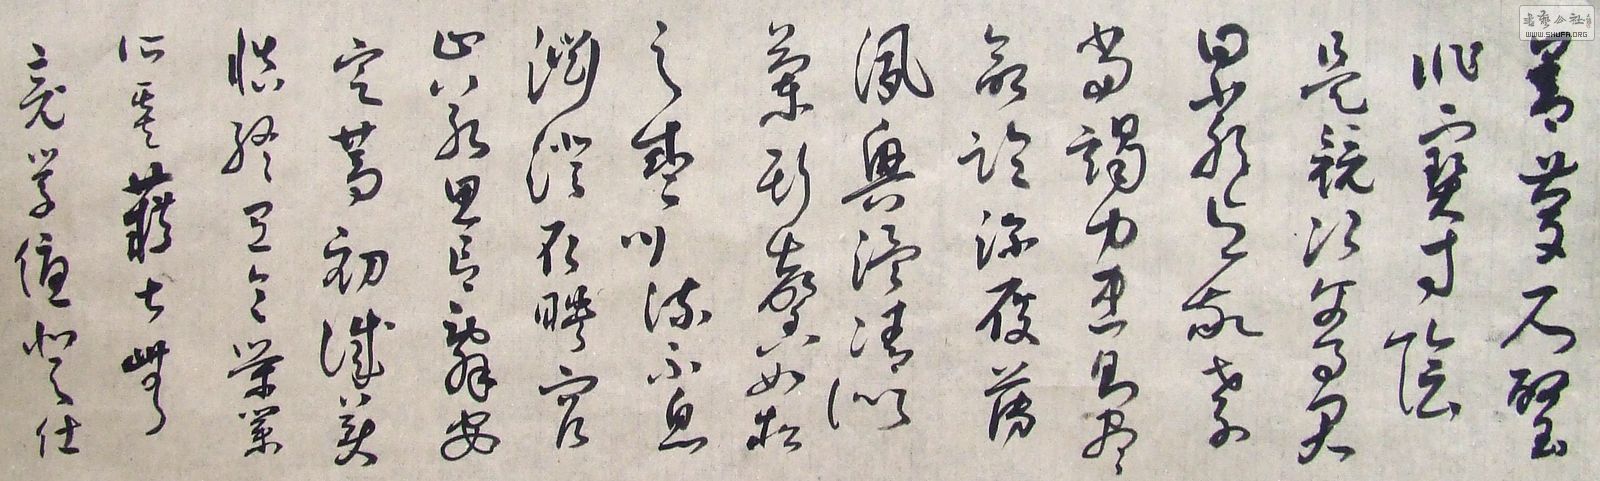 善慶尺璧
非寶寸陰
是競資父事君
曰嚴與敬孝
當竭力忠則盡
命臨深履薄
夙興溫清似
蘭斯馨如松
之盛川流不息
淵澄取映容
止若思言辭安
定篤初誠美
慎終宜令榮業
所基藉甚無
竟學優登仕
书艺公社
WWW.SHUFA.ORG